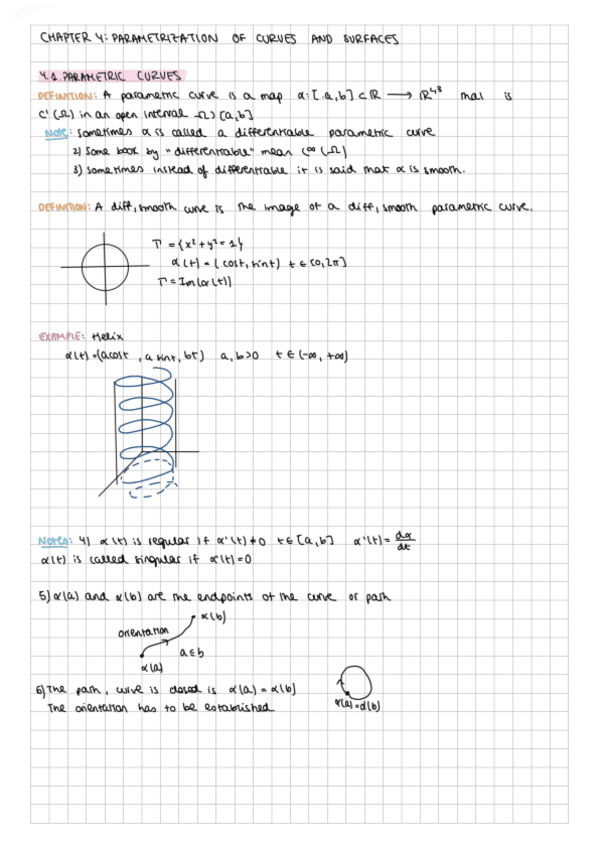 CHAPTER 4: PARAMETRIZATION OF CURVES AND SURFACES
4.1 PARAMETRIC CURVES
DEFINITION: A parametric curve is a map α: [a,b] ⊂ ℝ ⟶ ℝ that is
C¹(Ω) in an open interval Ω ⊃ [a,b]
Note: sometimes α is called a differentiable parametric curve
2) Some book by "differentiable" mean C∞(Ω)
3) Sometimes instead of differentiable it is said that α is smooth.
DEFINITION: A diff, smooth curve is the image of a diff, smooth parametric curve.
Γ = {x²+y²=1}
α(t) = (cost, sint) t ∈ [0,2π]
Γ = Im(α(t))
EXAMPLE: Helix
α(t)=(acost, a sint, bt) a,b>0 t ∈ (-∞, +∞)
Notes: 4) α(t) is regular if α'(t)≠0 t∈[a,b] α'(t)= dα/dt
α(t) is called singular if α'(t)=0
5) α(a) and α(b) are the endpoints of the curve or path
α(b)
orientation
a≤b
α(a)
6) The path, curve is closed is α(a) = α(b)
α(a)=α(b)
The orientation has to be established